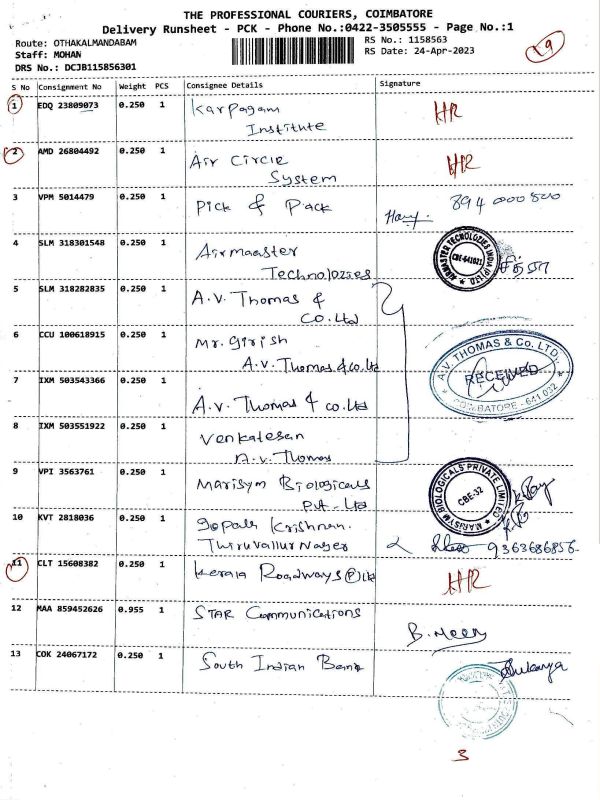 THE PROFESSIONAL COURIERS, COIMBATORE
Delivery Runsheet - PCK - Phone No.:0422-3505555 - Page No.:1
Route: OTHAKALMANDABAM
RS No.: 1158563
Staff: MOHAN
RS Date: 24-Apr-2023
DRS No.: DCJB115856301
S No Consignment No Weight PCS Consignee Details Signature
1 EDQ 23809073 0.250 1 Karpagam
Institute
HR
2 AMD 26804492 0.250 1 Air Circle
System
HR
3 VPM 5014479 0.250 1 Pick & Pack
Hary. 894 000 800
4 SLM 318301548 0.250 1 Airmaaster
Technolozies
AIRMASTER TECNOLOZIES INDIA (P) LTD
CBE-641021
5 SLM 318282835 0.250 1 A.V. Thomas &
Co.Ltd
6 CCU 100618915 0.250 1 Mr. Girish
A.V. Thomas & co.ltd
A.V. THOMAS & Co. LTD.
RECEIVED
COIMBATORE - 641 032
7 IXM 503543366 0.250 1 A.V. Thomas & co.ltd
8 IXM 503551922 0.250 1 Venkatesan
A.V. Thomas
9 VPI 3563761 0.250 1 Marisym Biologicals
Pvt. Ltd
MARISYM BIOLOGICALS PRIVATE LIMITED
CBE-32
10 KVT 2818036 0.250 1 Gopala Krishnan.
Thiruvallur Nager
9363686856
11 CLT 15608382 0.250 1 Kerala Roadways (P) Ltd
HR
12 MAA 859452626 0.955 1 STAR Communications
B. Meen
13 COK 24067172 0.250 1 South Indian Bank
Sukanya
3